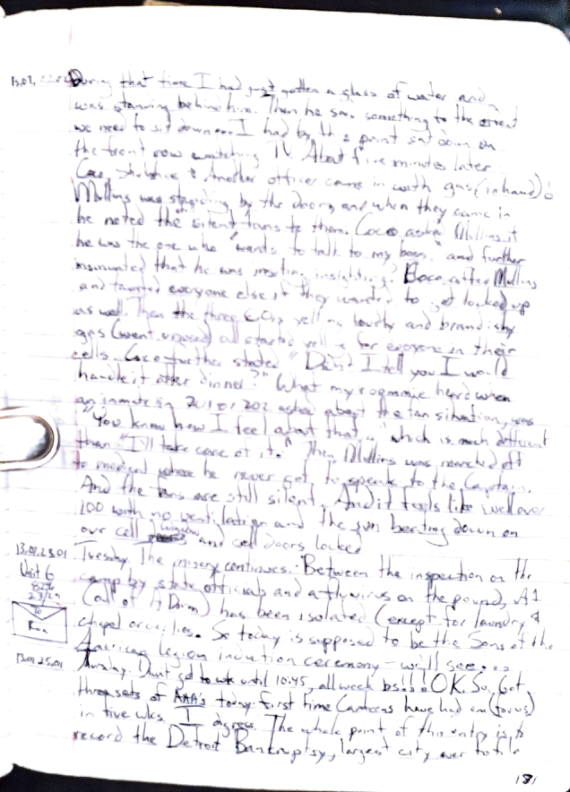 During that time I had just gotten a glass of water and
was standing behind him. Then he said something to the extent
we need to sit down. I had by that point sat down on
the front row watching TV. About five minutes later
Coco, & Another officer came in with gas (in hand)
Mullins was standing by the door, and when they came in
he noted the silent fans to them. Coco asked Mullins if
he was the one who "wants to talk to my boss." and further
insinuated that he was Coco cuffed Mullins
and everyone else if they wanted to get locked up
as well. Then the three COs yelling loudly and brandishing
gas (went unused) all started yelling for everyone in their
cells. Coco further stated "Didn't I tell you I would
handle it after dinner?" What my roommate heard when
an inmate in 201 or 202 asked about the fan situation, was
"You know how I feel about that," which is much different
than "I'll take care of it." Then Mullins was marched off
to medical where he never got to speak to the Captain.
And the fans are still silent. And it feels like well over
100 with no ventilation and the sun beating down on
our cell windows and cell doors locked
13.07.23.01 Tuesday. The misery continues. Between the inspection on the
Unit 6 camp by state officials and a virus on the pound, A1
(all of A Dorm) has been isolated (except for laundry &
chapel orderlies. So today is supposed to be the Sons of the
American Legion induction ceremony - we'll see...
13.07.25.01 Thursday. Didn't go to wk until 10:45, all week bs!!! OK. So, Got
three sets of AAA's today first time Canteens have had em (for us)
in five wks. I digress. The whole point of this entry is to
record the Detroit Bankruptsy, largest city ever to file
181